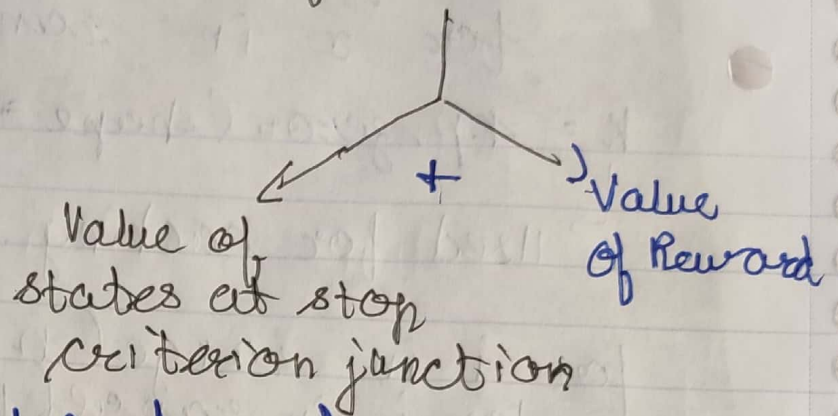 +
Value of
states at stop
criterion junction
Value
of Reward